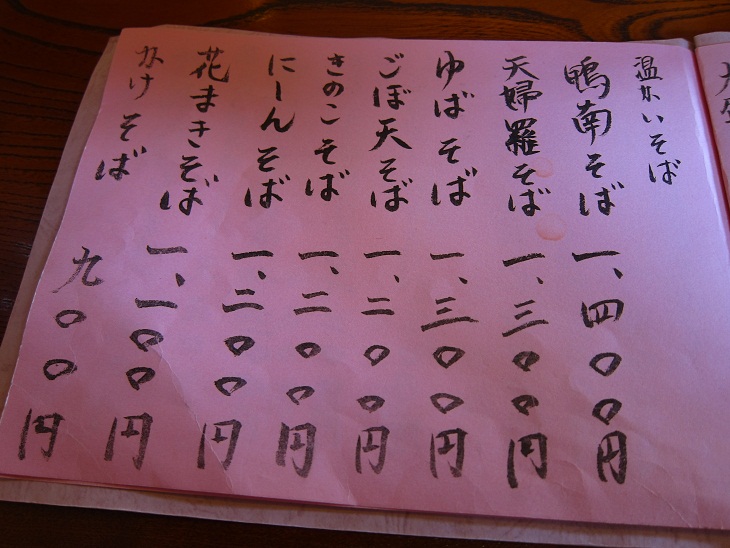 温かいそば
鴨南そば 一、四〇〇円
天婦羅そば 一、三〇〇円
ゆばそば 一、三〇〇円
ごぼ天そば 一、二〇〇円
きのこそば 一、二〇〇円
にしんそば 一、二〇〇円
花まきそば 一、一〇〇円
かけそば 九〇〇円